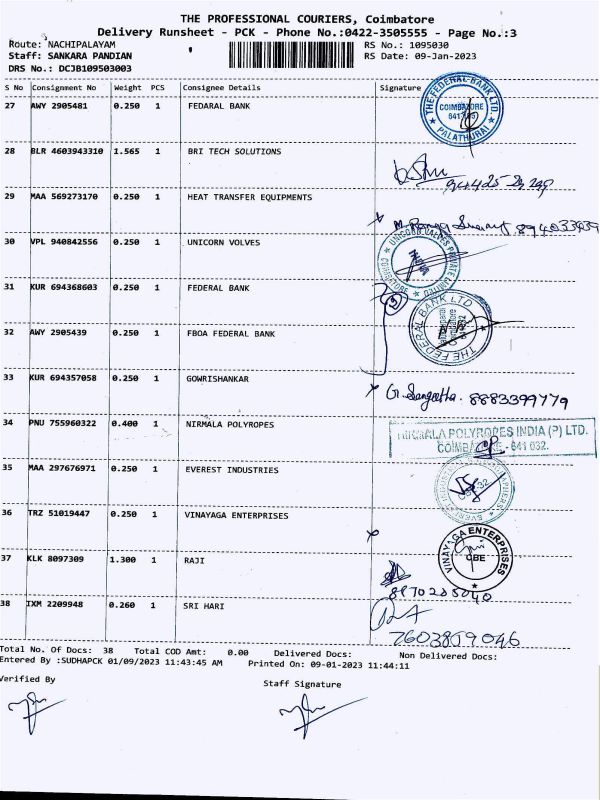 THE PROFESSIONAL COURIERS, Coimbatore
Delivery Runsheet - PCK - Phone No.:0422-3505555 - Page No.:3
Route: NACHIPALAYAM RS No.: 1095030
Staff: SANKARA PANDIAN RS Date: 09-Jan-2023
DRS No.: DCJB109503003
S No Consignment No Weight PCS Consignee Details Signature
27 AWY 2905481 0.250 1 FEDARAL BANK THE FEDERAL BANK LTD. COIMBATORE PALATHURAI
28 BLR 4603943310 1.565 1 BRI TECH SOLUTIONS
29 MAA 569273170 0.250 1 HEAT TRANSFER EQUIPMENTS
30 VPL 940842556 0.250 1 UNICORN VOLVES COIMBATORE
31 KUR 694368603 0.250 1 FEDERAL BANK
32 AWY 2905439 0.250 1 FBOA FEDERAL BANK THE FEDERAL BANK LTD
33 KUR 694357058 0.250 1 GOWRISHANKAR G. Sangeetha. 8883399779
34 PNU 755960322 0.400 1 NIRMALA POLYROPES NIRMALA POLYROPES INDIA (P) LTD.
COIMBATORE - 641 032.
35 MAA 297676971 0.250 1 EVEREST INDUSTRIES
36 TRZ 51019447 0.250 1 VINAYAGA ENTERPRISES VINAYAGA ENTERPRISES CBE
37 KLK 8097309 1.300 1 RAJI
38 IXM 2209948 0.260 1 SRI HARI 7603809046
Total No. Of Docs: 38 Total COD Amt: 0.00 Delivered Docs: Non Delivered Docs:
Entered By :SUDHAPCK 01/09/2023 11:43:45 AM Printed On: 09-01-2023 11:44:11
Verified By Staff Signature